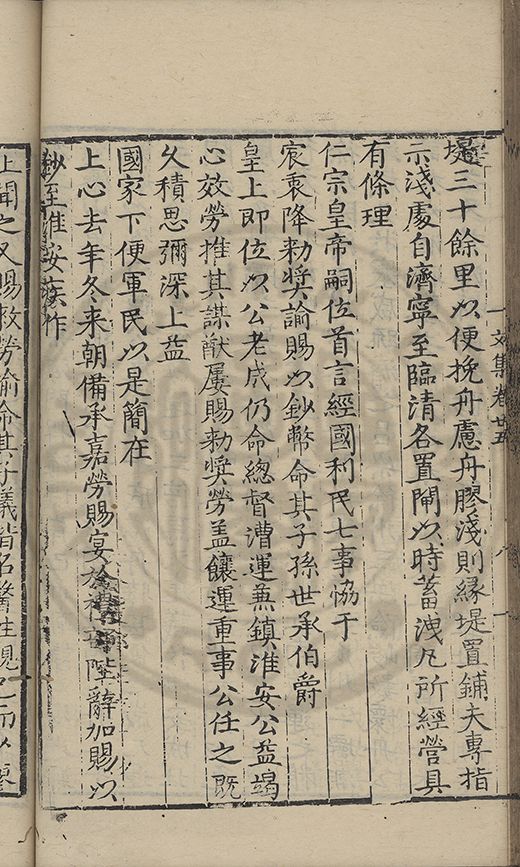 文集卷廿五
八
堤三十餘里以便挽舟慮舟膠淺則緣堤置鋪夫專指
示淺處自濟寧至臨清各置閘以時蓄洩凡所經營具
有條理
仁宗皇帝嗣位首言經國利民七事恊于
宸衷降勑奬諭賜以鈔幣命其子孫世承伯爵
皇上即位以公老成仍命總督漕運兼鎮淮安公益竭
心效勞推其謀猷屢賜勑奬勞盖饟運重事公任之既
久積思彌深上益
國家下便軍民以是簡在
上心去年冬来朝備承嘉勞賜宴於禮部陛辭加賜以
鈔至淮安疾作
上聞之又賜敕勞諭命其子儀偕名醫往視之而以